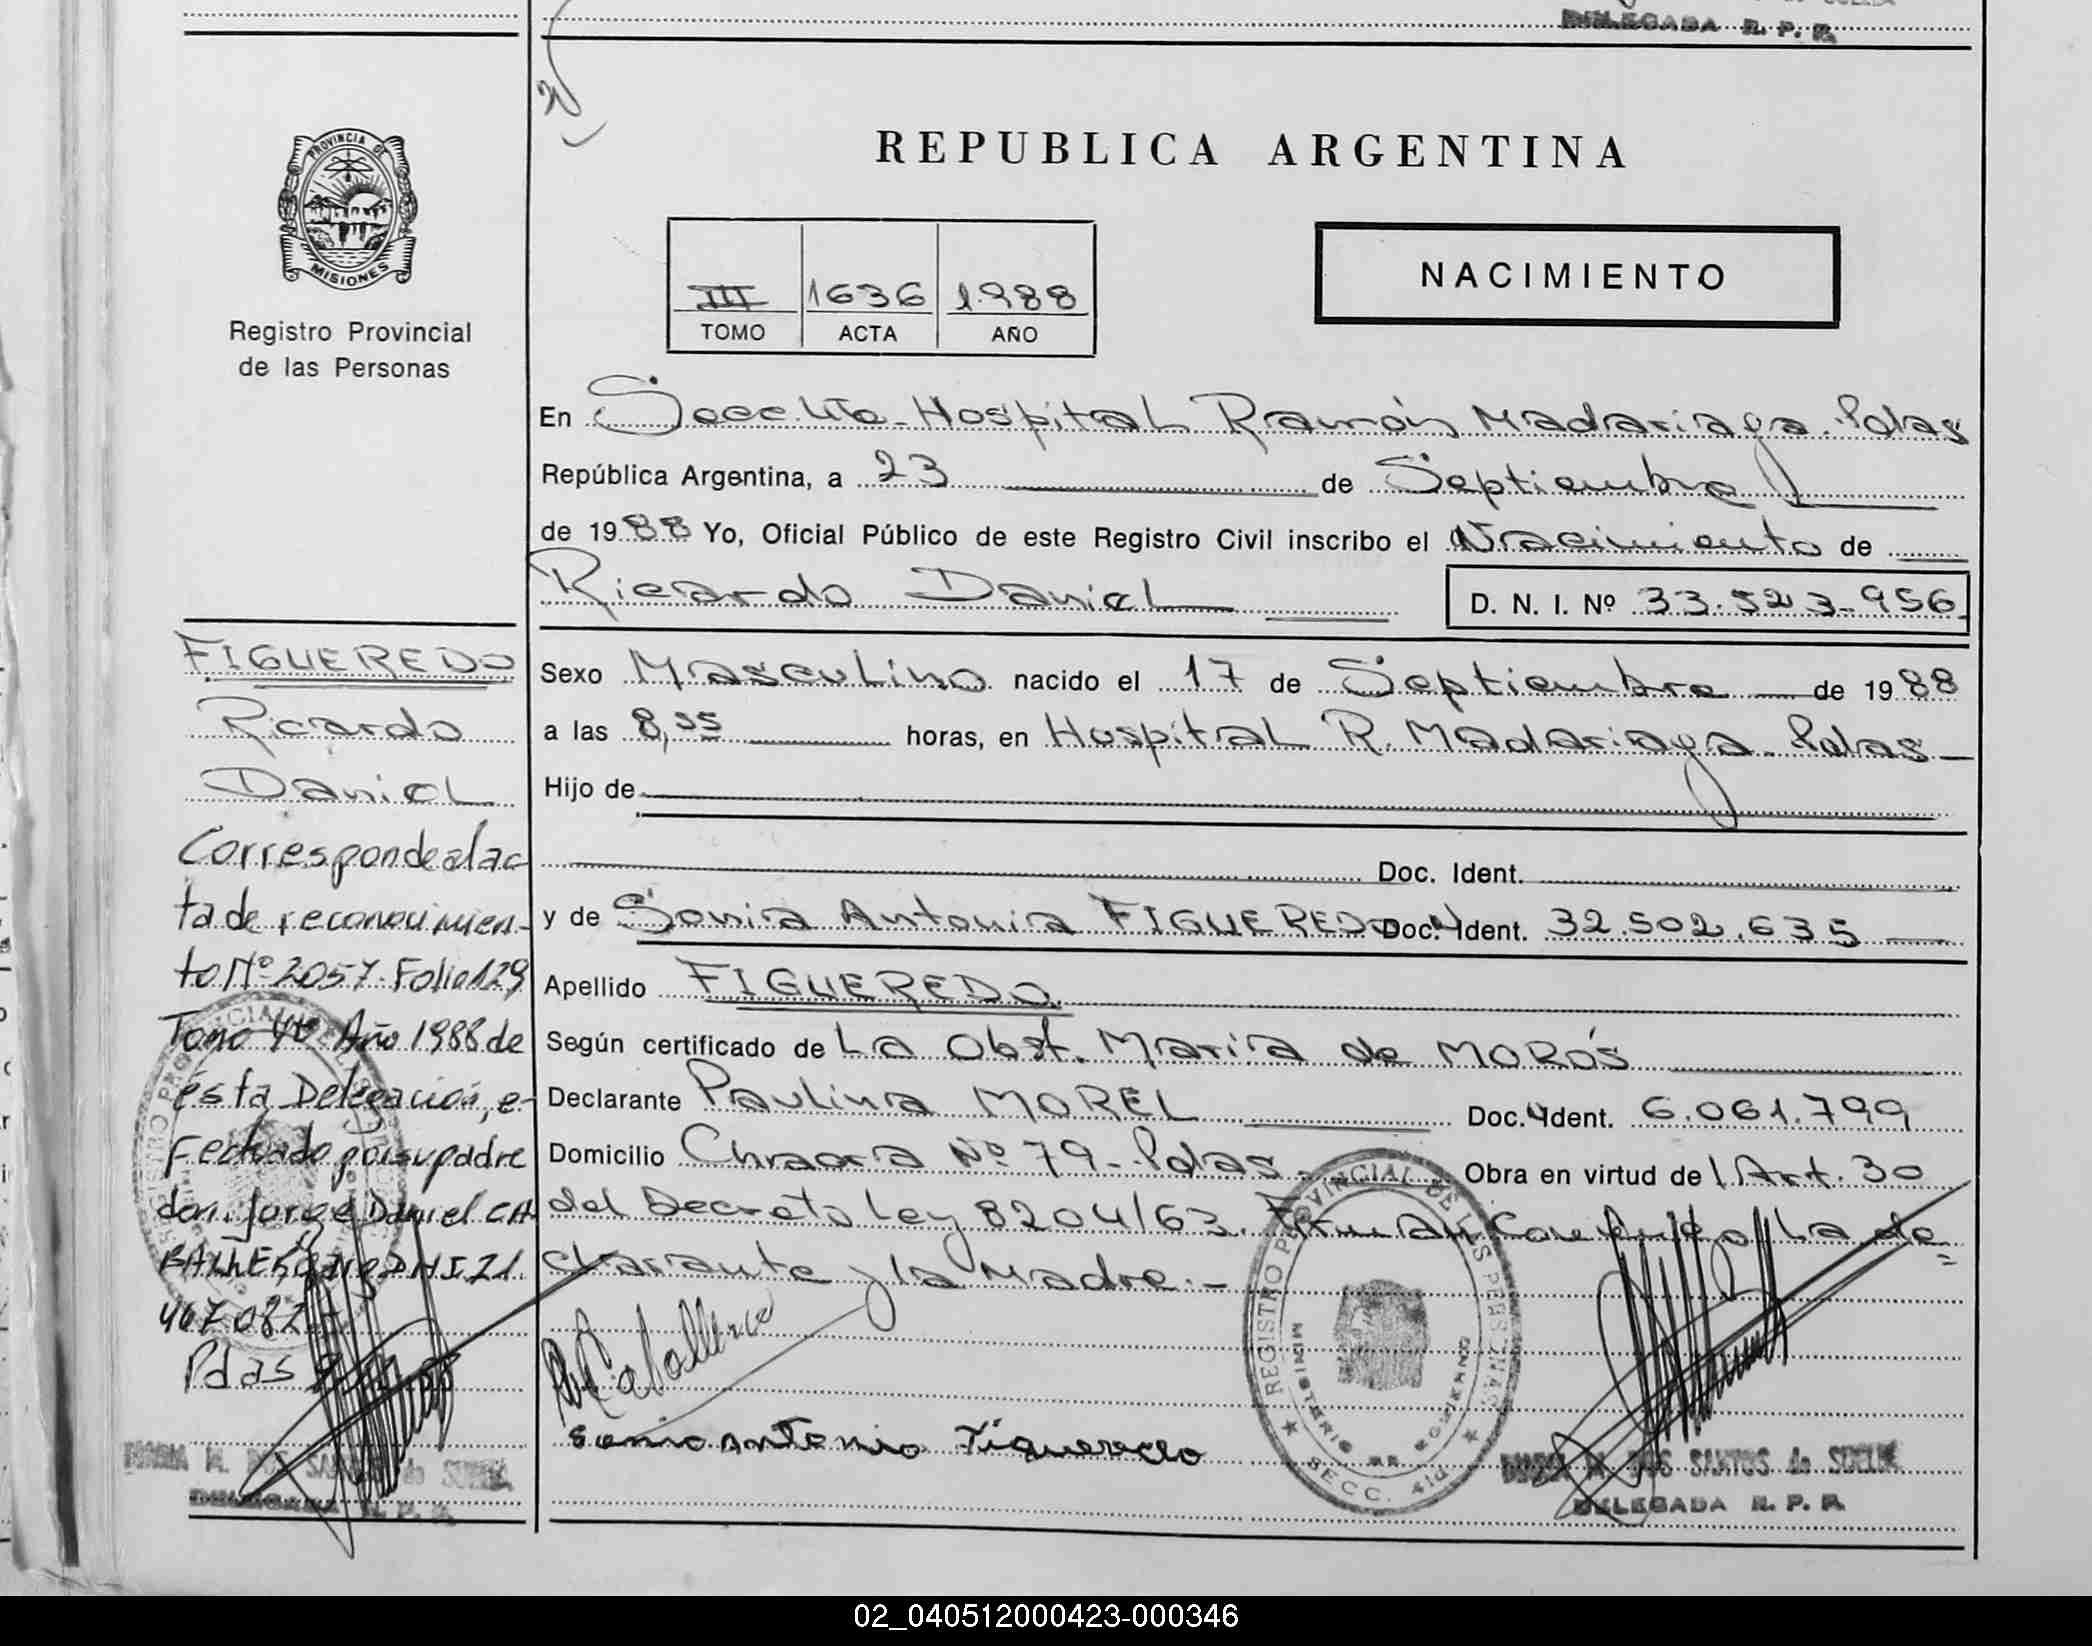 DELEGADA R. P. P.
PROVINCIA DE
MISIONES
Registro Provincial
de las Personas
REPUBLICA ARGENTINA
III 1636 1988
TOMO ACTA AÑO
NACIMIENTO
En Secc. 4ta. Hospital Ramón Madariaga. Pdas
República Argentina, a 23 de Septiembre
de 1988 Yo, Oficial Público de este Registro Civil inscribo el Nacimiento de
Ricardo Daniel
D. N. I. Nº 33.523.956
Sexo Masculino nacido el 17 de Septiembre de 1988
a las 8,55 horas, en Hospital R. Madariaga. Pdas
Hijo de
Doc. Ident.
y de Sonia Antonia FIGUEREDO Doc. Ident. 32.502.635
Apellido FIGUEREDO
Según certificado de La Obst. María de MOROS
Declarante Paulina MOREL Doc. Ident. 6.061.799
Domicilio Chacra Nº 79. Pdas. Obra en virtud del Art. 30
del Decreto Ley 8204/63. Firman Conmigo La de=
clarante y la Madre.-
Caballero
Sonia Antonia Figueredo
REGISTRO PROVINCIAL DE LAS PERSONAS
MINISTERIO DE GOBIERNO
SECC. 4ta
MARIA M. DOS SANTOS de
DELEGADA R. P. P.
FIGUEREDO
Ricardo
Daniel
Corresponde al ac
ta de reconocimien-
to Nº 2057. Folio 129
Tomo 4to Año 1988 de
ésta Delegación, e-
fectuado por su padre
don. Jorge Daniel CA
BALLERO DNI 21.
467.087.-
Pdas
MARIA M. DOS SANTOS de
DELEGADA R. P. P.
02_040512000423-000346